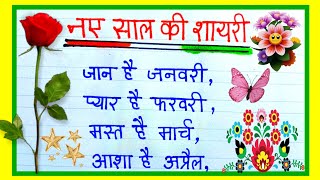 नए साल की शायरी
जान है जनवरी,
प्यार है फरवरी,
मस्त है मार्च,
आशा है अप्रैल,